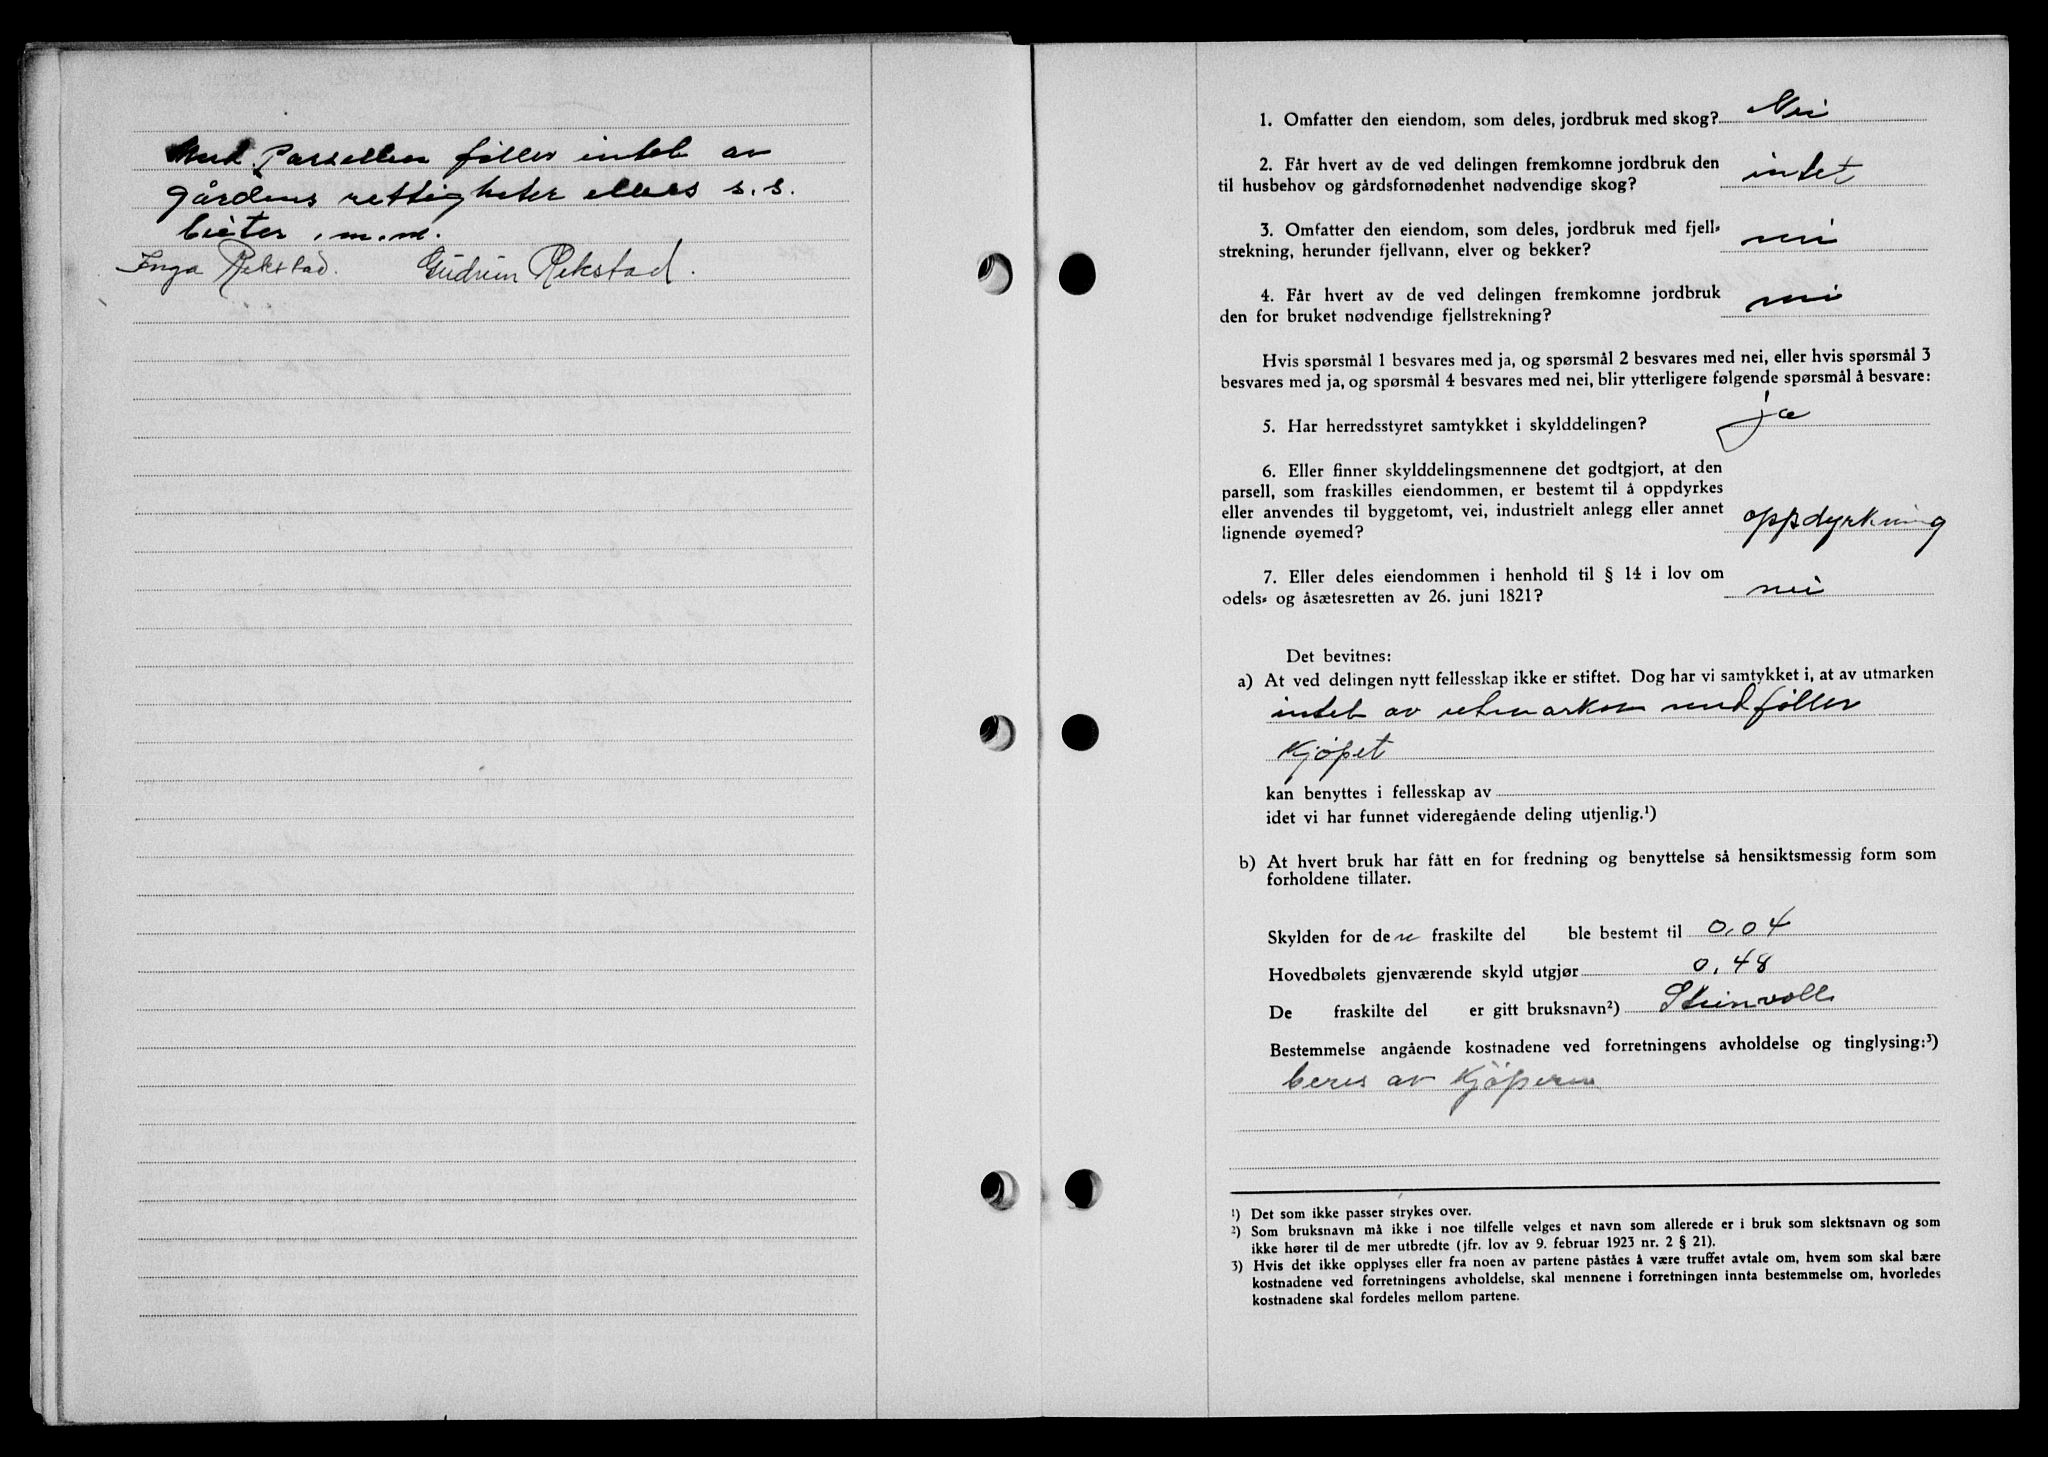 Med Parsellen føller intet av
gårdens rettigheter ellers s.s.
beiter m.m.
Inga Rekstad. Gudrun Rekstad.
1. Omfatter den eiendom, som deles, jordbruk med skog? Nei
2. Får hvert av de ved delingen fremkomne jordbruk den
til husbehov og gårdsfornødenhet nødvendige skog? intet
3. Omfatter den eiendom, som deles, jordbruk med fjell-
strekning, herunder fjellvann, elver og bekker? nei
4. Får hvert av de ved delingen fremkomne jordbruk
den for bruket nødvendige fjellstrekning? nei
Hvis spørsmål 1 besvares med ja, og spørsmål 2 besvares med nei, eller hvis spørsmål 3
besvares med ja, og spørsmål 4 besvares med nei, blir ytterligere følgende spørsmål å besvare:
5. Har herredsstyret samtykket i skylddelingen? ja
6. Eller finner skylddelingsmennene det godtgjort, at den
parsell, som fraskilles eiendommen, er bestemt til å oppdyrkes
eller anvendes til byggetomt, vei, industrielt anlegg eller annet
lignende øyemed? oppdyrkning
7. Eller deles eiendommen i henhold til § 14 i lov om
odels- og åsætesretten av 26. juni 1821? nei
Det bevitnes:
a) At ved delingen nytt fellesskap ikke er stiftet. Dog har vi samtykket i, at av utmarken
intet av utmarken medføller
kjøpet
kan benyttes i fellesskap av
idet vi har funnet videregående deling utjenlig.¹)
b) At hvert bruk har fått en for fredning og benyttelse så hensiktsmessig form som
forholdene tillater.
Skylden for den fraskilte del ble bestemt til 0,04
Hovedbølets gjenværende skyld utgjør 0,48
De fraskilte del er gitt bruksnavn²) Steinvoll
Bestemmelse angående kostnadene ved forretningens avholdelse og tinglysing:³)
beres av Kjøperen
¹) Det som ikke passer strykes over.
²) Som bruksnavn må ikke i noe tilfelle velges et navn som allerede er i bruk som slektsnavn og som
ikke hører til de mer utbredte (jfr. lov av 9. februar 1923 nr. 2 § 21).
3) Hvis det ikke opplyses eller fra noen av partene påståes å være truffet avtale om, hvem som skal bære
kostnadene ved forretningens avholdelse, skal mennene i forretningen innta bestemmelse om, hvorledes
kostnadene skal fordeles mellom partene.